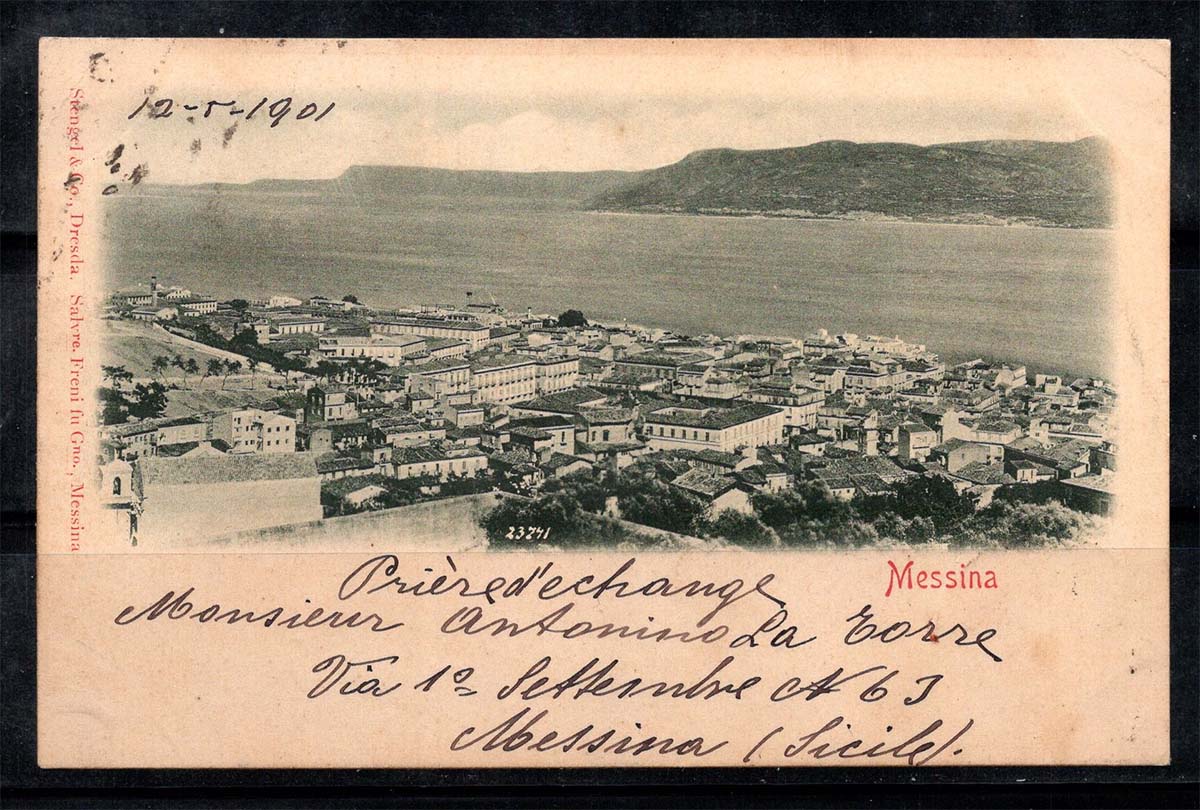 12-5-1901
Stengel & Co., Dresda. Salvre. Freni fu Gno., Messina
23741
Messina
Prière d'echange
Monsieur Antonino La Torre
Via 1º Settembre N 63
Messina (Sicile).